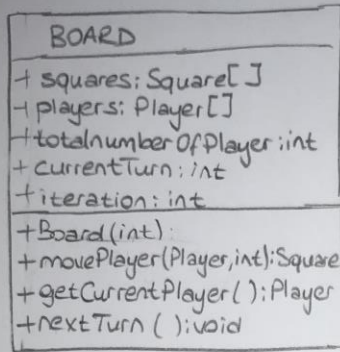 BOARD
+ squares: Square[]
+ players: Player[]
+totalnumberOfPlayer:int
+ currentTurn: int
+iteration: int
+Board(int):
+movePlayer(Player,int):Square
+getCurrentPlayer():Player
+nextTurn():void